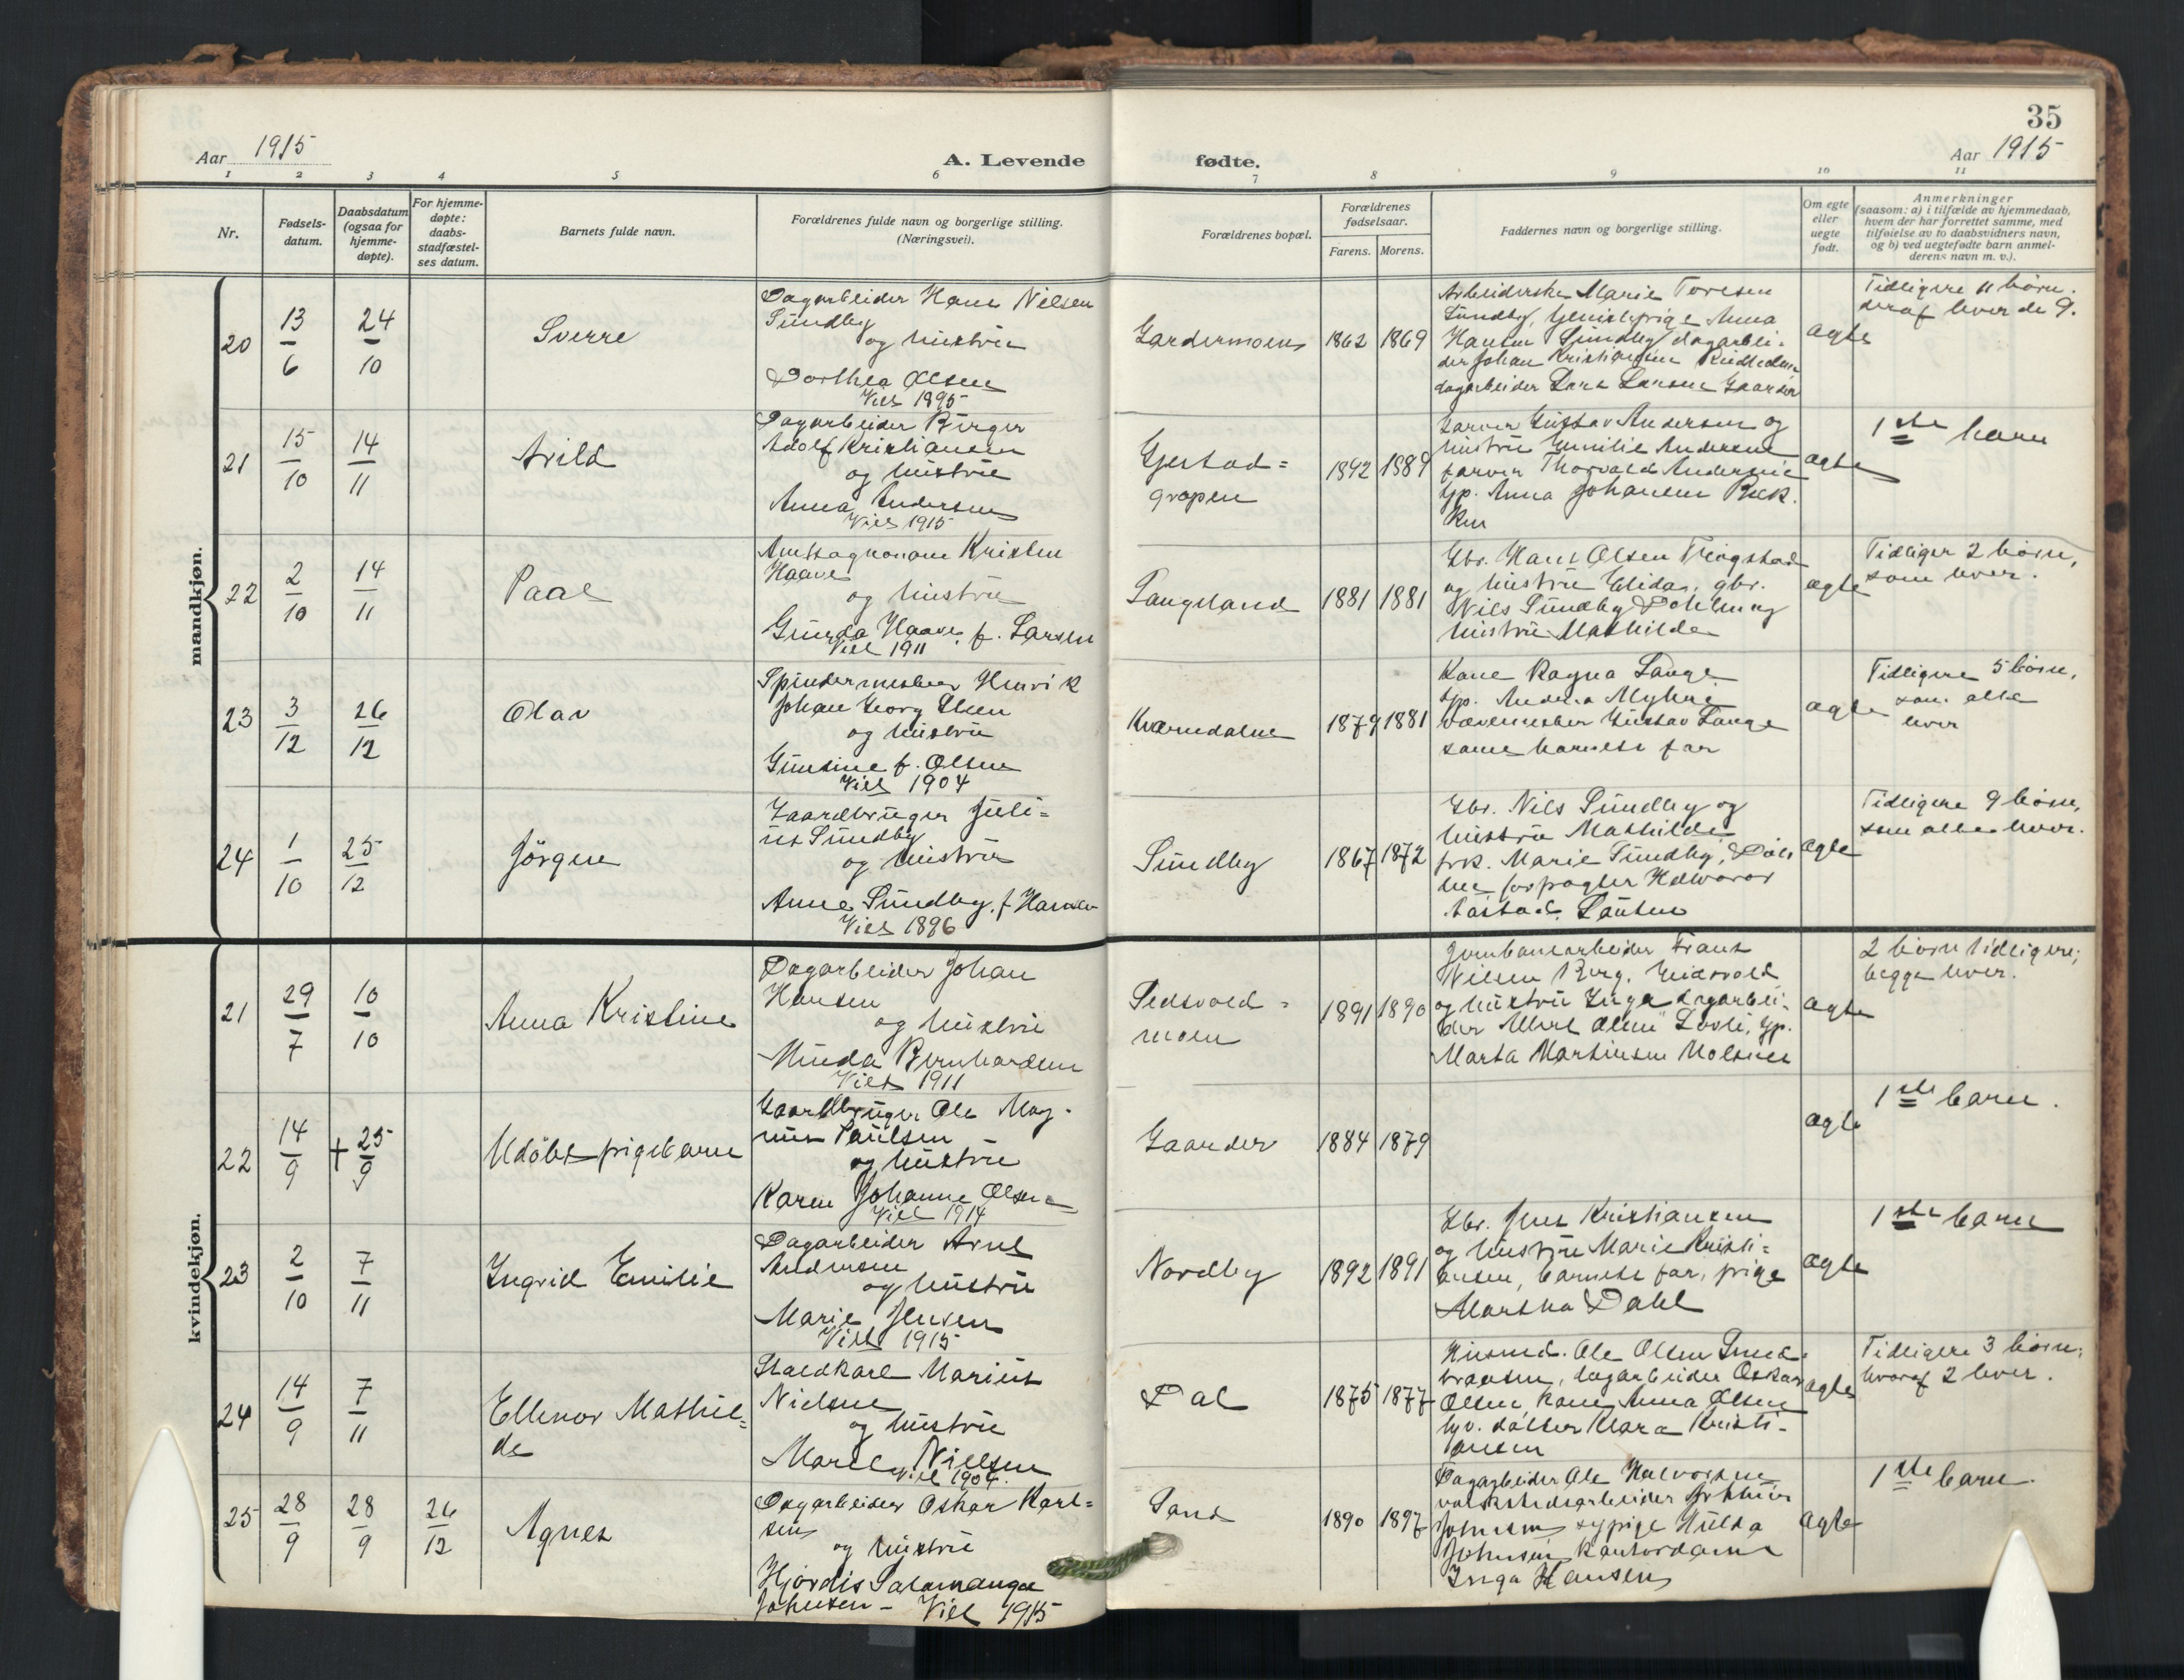 35
Aar 1915
A. Levende
fødte.
Aar 1915
1 2 3 4 5 6 7 8 9 10 11
Nr.
Fødsels-
datum.
Daabsdatum
(ogsaa for
hjemme-
døpte).
For hjemme-
døpte:
daabs-
stadfæstel-
ses datum.
Barnets fulde navn.
Forældrenes fulde navn og borgerlige stilling.
(Næringsvei).
Forældrenes bopæl.
Forældrenes
fødselsaar.
Farens. Morens.
Faddernes navn og borgerlige stilling.
Om egte
eller
uegte
født.
Anmerkninger
(saasom: a) i tilfælde av hjemmedaab,
hvem der har forrettet samme, med
tilføielse av to daabsvidners navn,
og b) ved uegtefødte barn anmel-
derens navn m. v.).
mandkjøn.
20
13/6
24/10
Sverre
Dagarbeider Hans Nilsen
Sundby
og hustru
Dorthea Olsen
Viet 1895
Gardermoen
1862 1869
Arbeiderske Marie Toresen
Sundby, Anna
Hansen Sundby, dagarbei-
der Johan Kristiansen
dagarbeider Lars Larsen Gaarder
ægte
Tidligere 11 børn.
deraf lever de 9.
21
15/10
14/11
Arild
Dagarbeider Birger
Adolf Kristiansen
og hustru
Anna Andersen
Viet 1915
Gjestad=
gropen
1892 1889
Gustav Andersen og
hustru Emilie Andersen
farver Thorvald Andersen
Gp. Anna Johansen Bek-
ken
ægte
1ste barn
22
2/10
14/11
Paal
Amtsagronom Kristen
Haave
og hustru
Gunda Haave, f. Larsen
Viet 1911
Langeland
1881 1881
Gbr. Hans Olsen
og hustru Elida, gbr.
Nils Sundby Døhlen og
hustru Mathilde
ægte
Tidligere 2 børn,
som lever.
23
3/12
26/12
Olav
Spindermester Henrik
Johan Georg Olsen
og hustru
Gunsine f. Olsen
Viet 1904
Kværndalen
1879 1881
Kone Ragna Lange
Gp. Andrea Myhre
vævemester Gustav Lange
samt barnets far
ægte
Tidligere 5 børn,
som alle
lever
24
1/10
25/12
Jørgen
Gaardbruger Juli=
us Sundby
og hustru
Anne Sundby, f. Hansen
Viet 1896
Sundby
1867 1872
Gbr. Nils Sundby og
hustru Mathilde
frk. Marie Sundby, Døh-
len forpagter Halvor
ægte
Tidligere 9 børn,
som alle lever.
kvindekjøn.
21
29/7
10/10
Anna Kristine
Dagarbeider Johan
Hansen
og hustru
Hulda Bernhardsen
Viet 1911
moen
1891 1890
Jernbanearbeider Frants
Nilsen Berg, Eidsvold
og hustru Inga dagarbei-
der Albert Olsen Lovli, Gp.
Marta Martinsen
ægte
2 børn tidligere,
begge lever.
22
14/9
+ 25/9
Udøbt pigebarn
Gaardbruger Ole Mag-
nus Paulsen
og hustru
Karen Johanne Olsen
Viet 1914
Gaarder
1884 1879
ægte
1ste barn.
23
2/10
7/11
Ingrid Emilie
Dagarbeider Arnt
Andersen
og hustru
Marie Jensen
Viet 1915
Nordby
1892 1891
Gbr. Jens Kristiansen
og hustru Marie Kristi=
ansen, barnets far, pige
Martha Dahl
ægte
1ste barn
24
14/9
7/11
Ellenor Mathil=
de
Staldkarl Marius
Nielsen
og hustru
Nielsen
Viet 1904.
Dal
1875 1877
Husmd. Ole Olsen
dagarbeider Oskar
Olsen, kone Anna Olsen
Gp. datter Klara Kristi-
ansen
ægte
Tidligere 3 børn,
hvoraf 2 lever.
25
28/9
28/9
26/12
Agnes
Dagarbeider Oskar Karl=
sen
og hustru
Hjørdis
Johnsen – Viet 1915
Sand
1890 1897
Dagarbeider Ole Halvorsen
verkstedsarbeider Arthur
Johnsen, sypige Hulda
Johnsen kontordame
Inga Hansen
ægte
1ste barn.